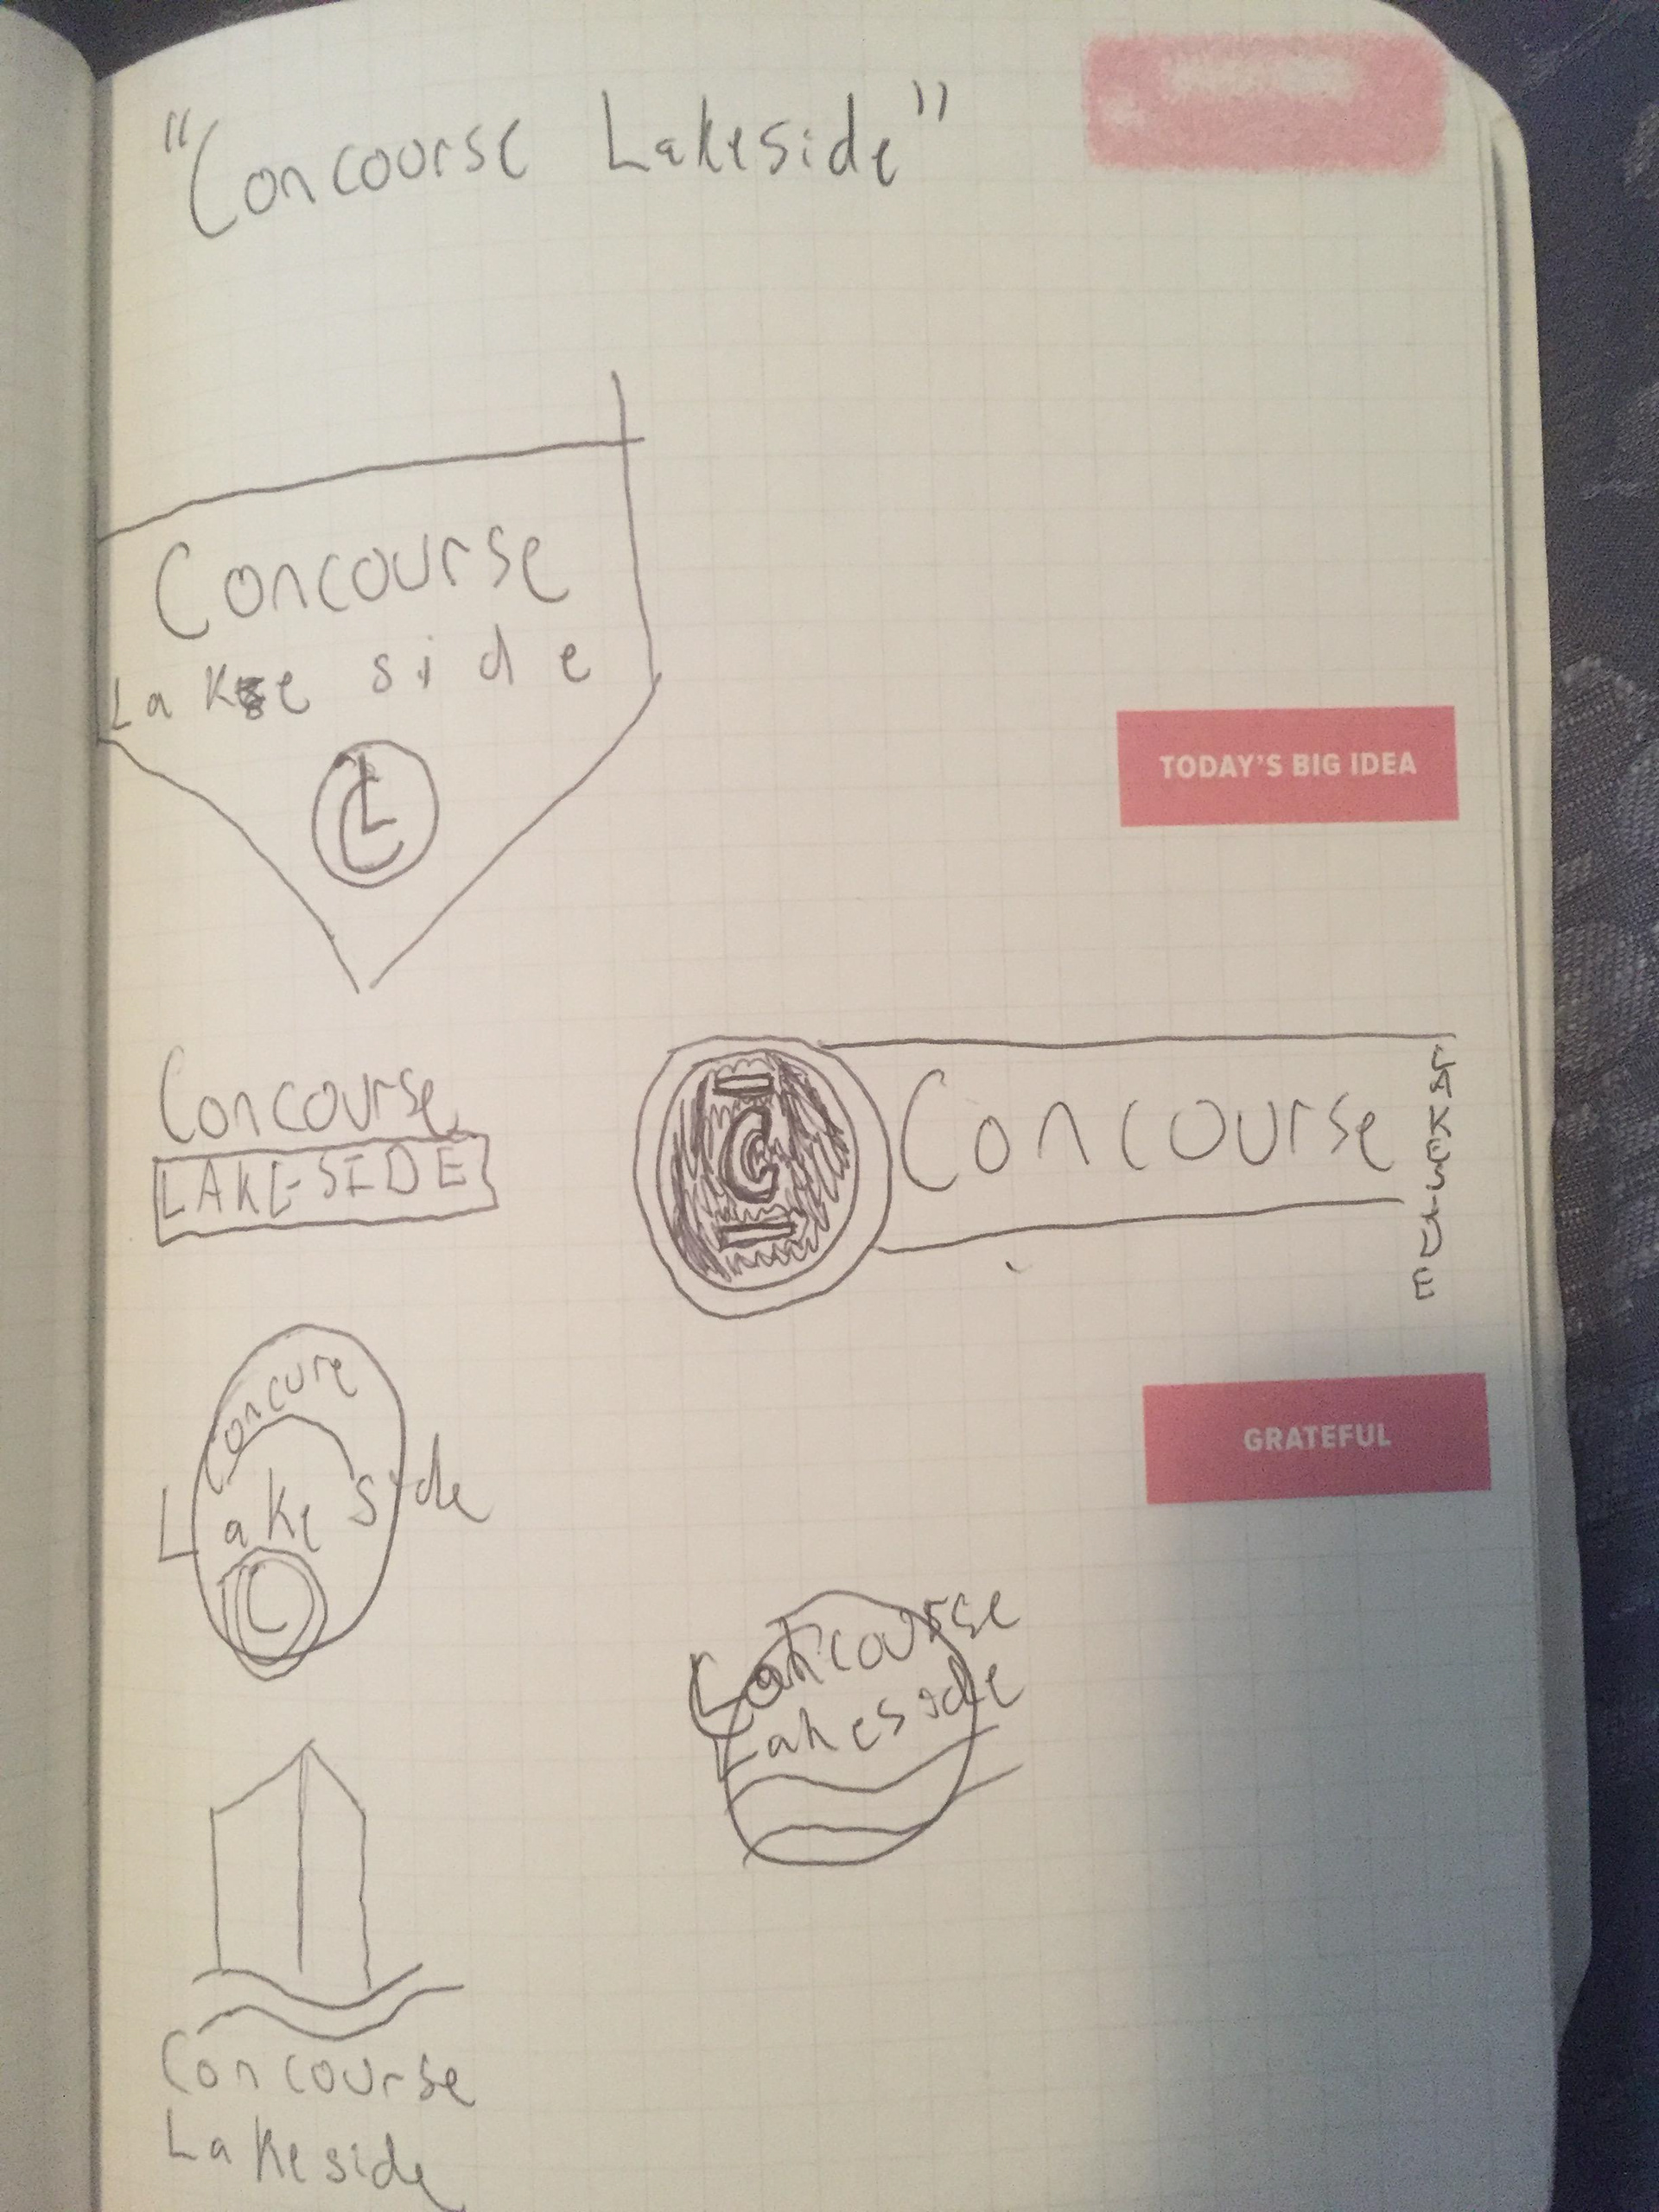 "Concourse Lakeside"
Concourse
Lake side
CL
TODAY'S BIG IDEA
Concourse
LAKESIDE
C
Concourse
LAKESIDE
Concoure
Lake side
C
GRATEFUL
Concourse
Lakeside
Concourse
Lakeside